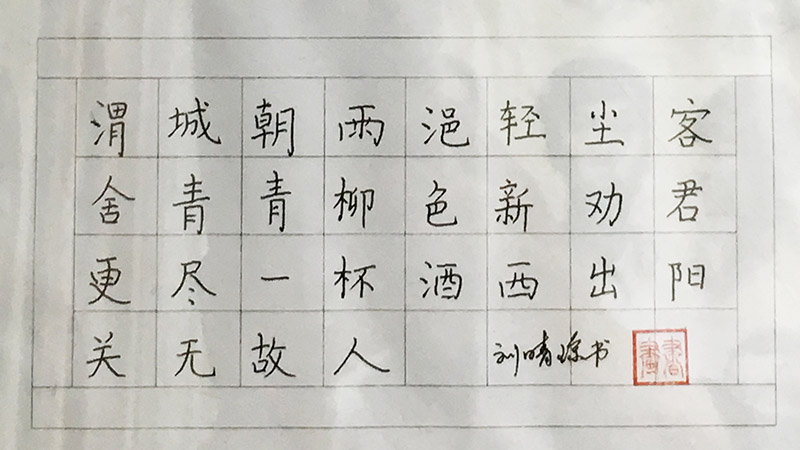 渭城朝雨浥轻尘客
舍青青柳色新劝君
更尽一杯酒西出阳
关无故人
刘晴琼书